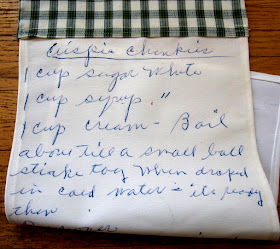 Crispie Chewies
1 cup sugar white
1 cup syrup. "
1 cup cream - Boil
about till a small ball
sticks tog when droped
in cold water - its ready
then